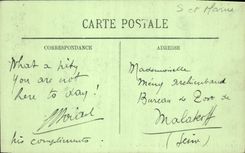 S et Marne
CARTE POSTALE
CORRESPONDANCE
ADRESSE
What a pity
you are not
here to day!
his compliments.
Mademoiselle
Mény Archambaud
Bureau de Poste de
Malakoff
(Seine)